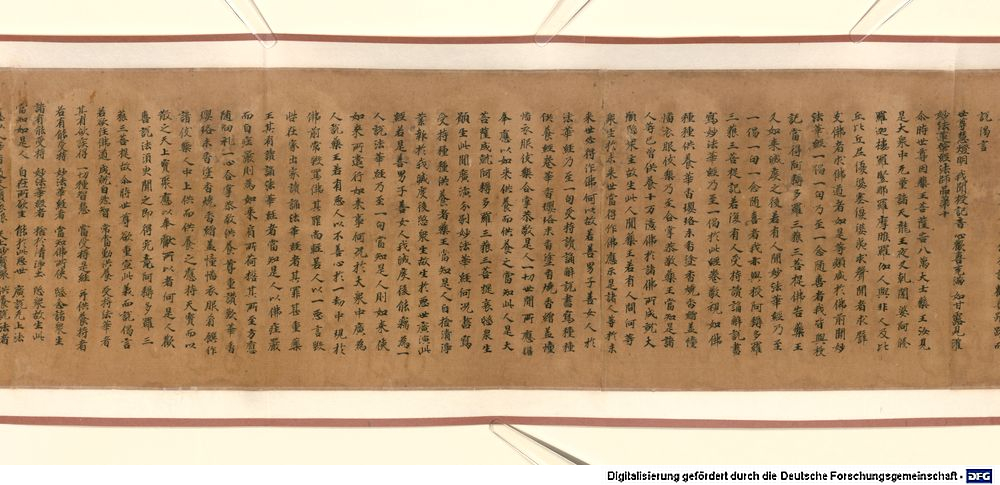 說偈言
世尊慧燈明 我聞授記音 心歡喜充滿 如甘露見灌
妙法蓮華經法師品第十
尒時世尊因藥王菩薩告八萬大士藥王汝見
是大衆中无量諸天龍王夜叉乹闥婆阿脩
羅迦樓羅緊那羅摩睺羅伽人與非人及比
丘比丘尼優婆塞優婆夷求聲聞者求辟
支佛者求佛道者如是等類咸於佛前聞妙
法華經一偈一句乃至一念隨喜者我皆與授
記當得阿耨多羅三藐三菩提佛告藥王
又如來滅度之後若有人聞妙法華經乃至
一偈一句一念隨喜者我亦與授阿耨多羅
三藐三菩提記若復有人受持讀誦解說書
寫妙法華經乃至一偈於此經卷敬視如佛
種種供養華香瓔珞末香塗香燒香繒蓋幢
幡衣服伎樂乃至合掌恭敬藥王當知是諸
人等已曾供養十万億佛於諸佛所成就大
願愍衆生故生此人間藥王若有人問何等
衆生於未來世當得作佛應示是諸人等於未
來世必得作佛何以故若善男子善女人於
法華經乃至一句受持讀誦解說書寫種種
供養經卷華香瓔珞末香塗香燒香繒蓋幢
幡衣服伎樂合掌恭敬是人一切世間所應瞻
奉應以如來供養而供養之當知此人是大
菩薩成就阿耨多羅三藐三菩提哀愍衆生
願生此間廣演分別妙法華經何況盡能
受持種種供養者藥王當知是人自捨清淨
業報於我滅度後愍衆生故生於惡世廣演此
經若是善男子善女人我滅度後能竊為一
人說法華經乃至一句當知是人則如來使
如來所遣行如來事何況於大衆中廣為
人說藥王若有惡人以不善心於一劫中現於
佛前常毀罵佛其罪尚輕若人以一惡言毀
呰在家出家讀誦法華經者其罪甚重藥
王其有讀誦法華經者當知是人以佛莊嚴
而自莊嚴則為如來肩所荷擔其所至方應
隨向礼一心合掌恭敬供養尊重讚歎華香
瓔珞末香塗香燒香繒蓋幢幡衣服肴饌作
諸伎樂人中上供而供養之應持天寶而以
散之天上寶聚應以奉獻所以者何是人歡
喜說法須臾聞之即得究竟阿耨多羅三
藐三菩提故尒時世尊欲重宣此義而說偈言
若欲住佛道 成就自然智 常當勤供養 受持法華者
其有欲疾得 一切種智慧 當受持是經 并供養持者
若有能受持 妙法華經者 當知佛所使 愍念諸衆生
諸有能受持 妙法華經者 捨於清淨土 愍衆故生此
當知如是人 自在所欲生 能於此惡世 廣說无上法
Digitalisierung gefördert durch die Deutsche Forschungsgemeinschaft - DFG